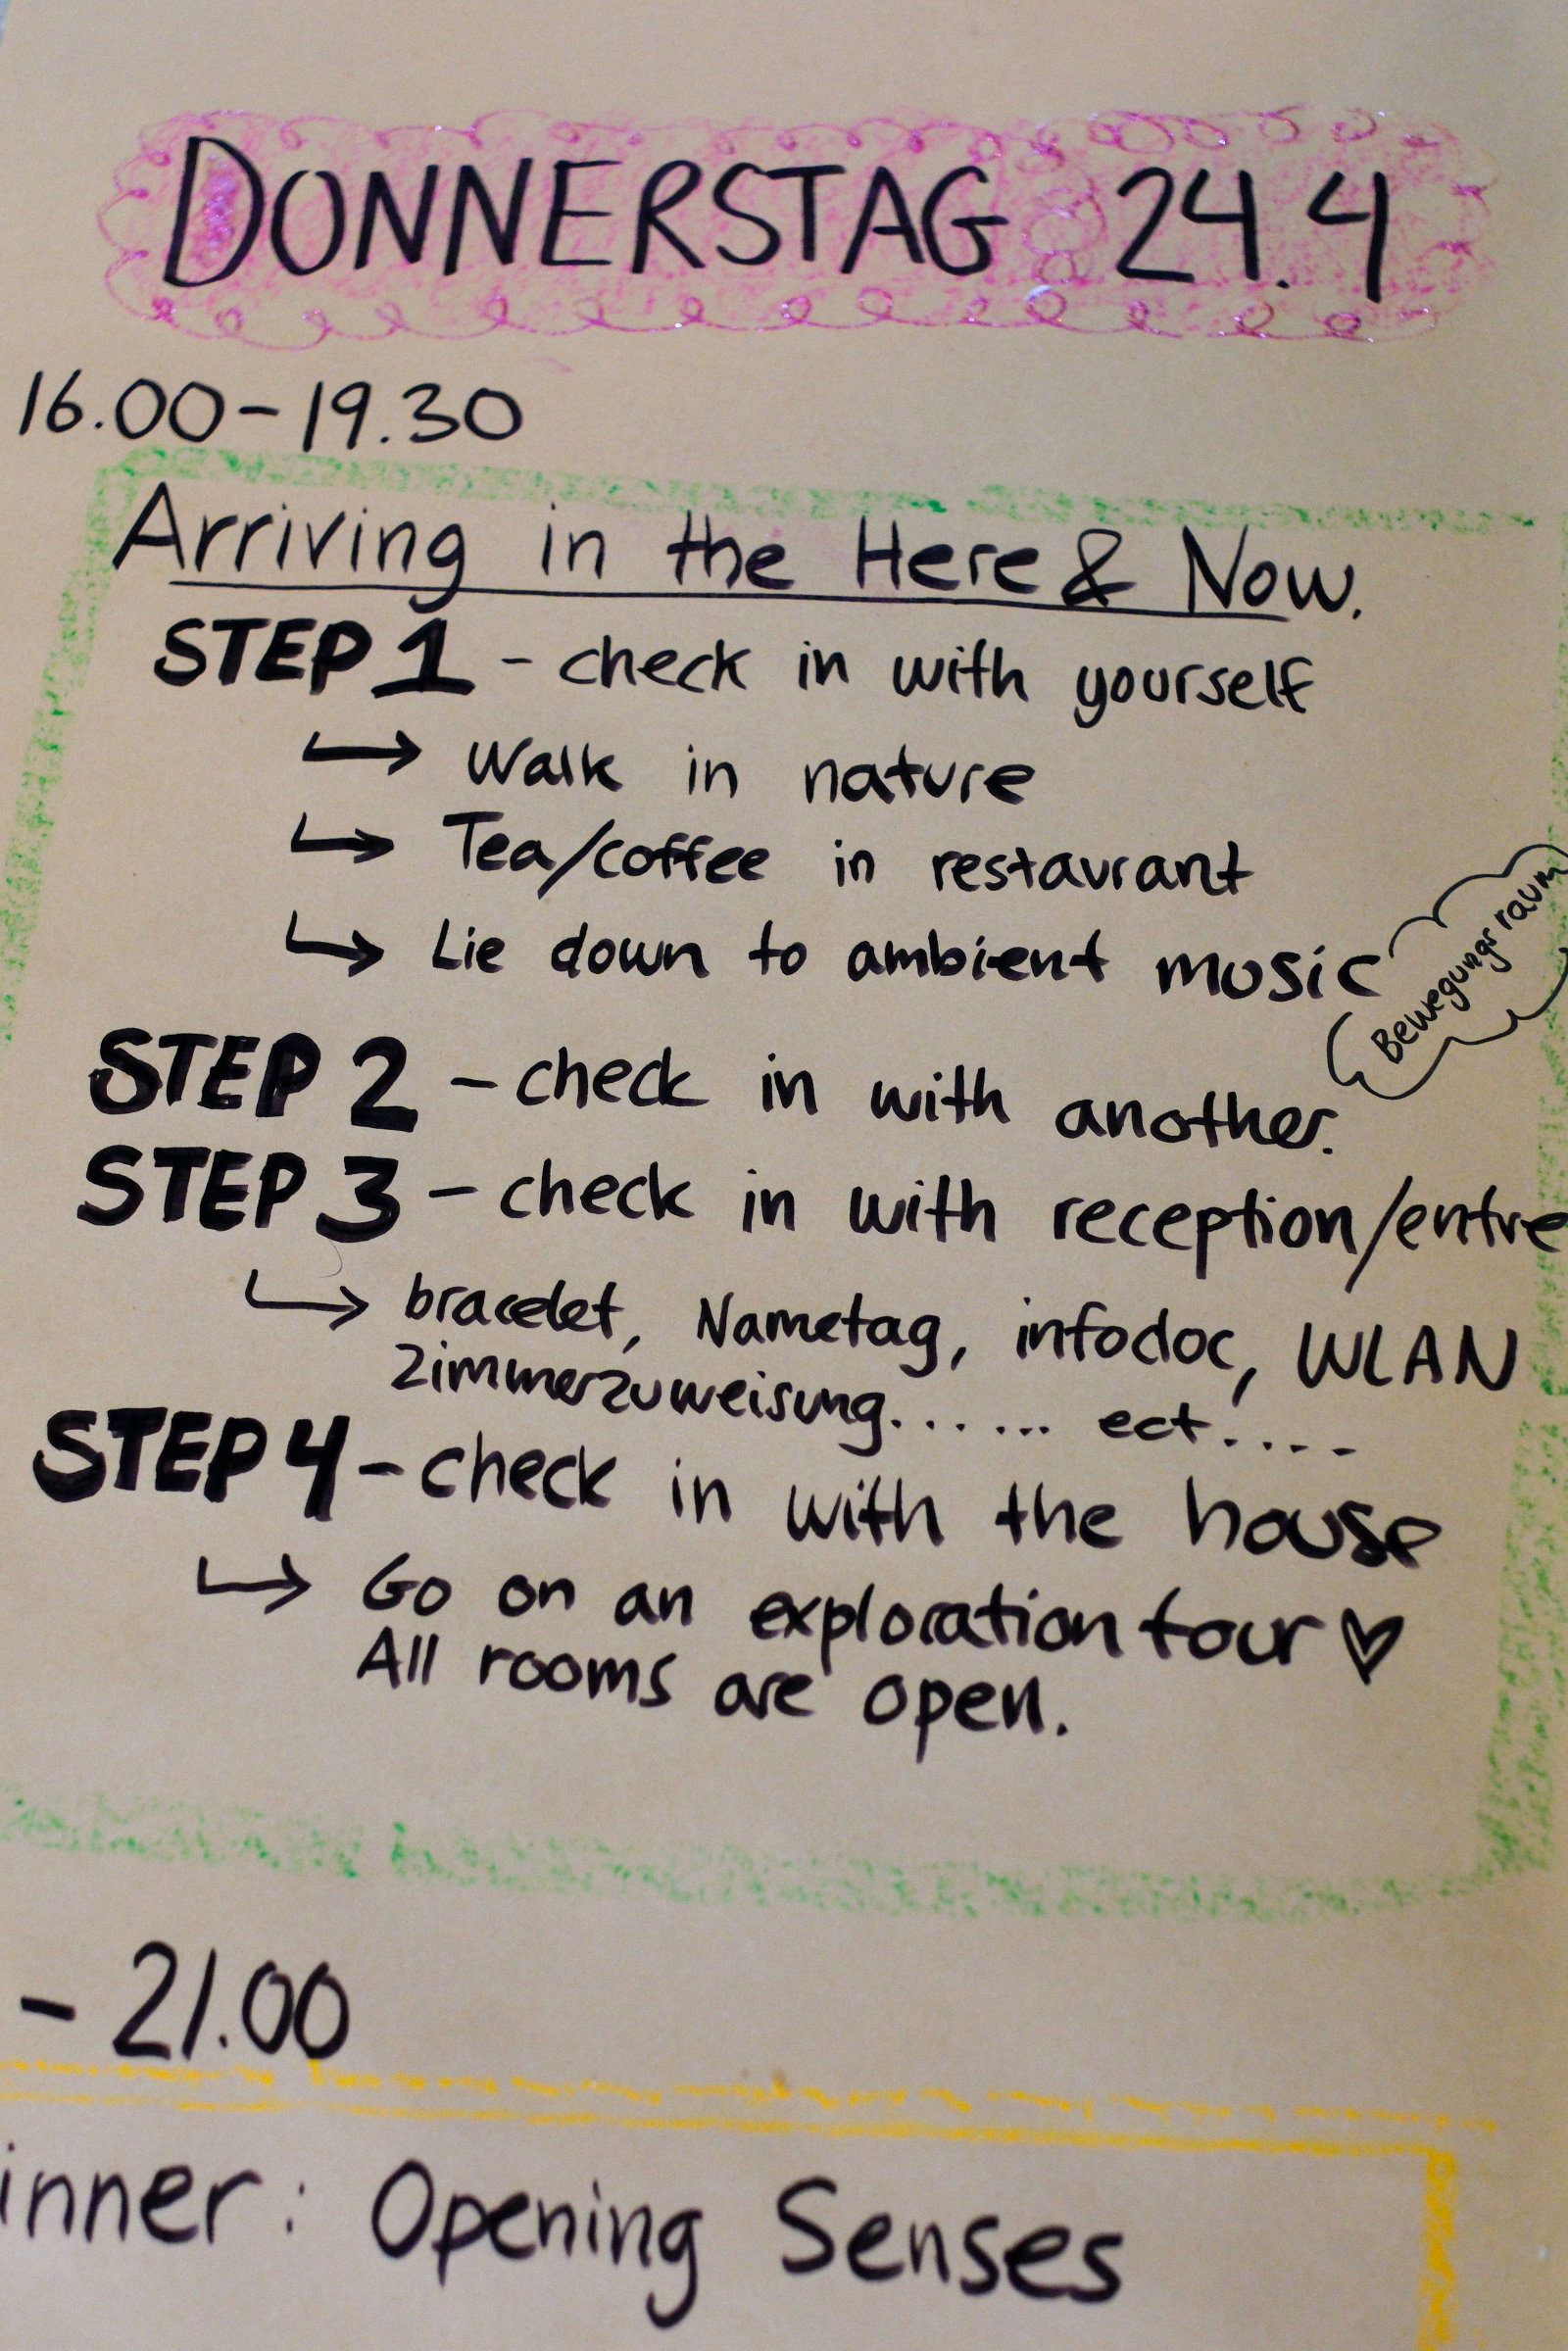 DONNERSTAG 24.4
16.00-19.30
Arriving in the Here & Now.
STEP 1 - check in with yourself
Walk in nature
Tea/coffee in restaurant
Lie down to ambient music
Bewegungsraum
STEP 2 - check in with another.
STEP 3 - check in with reception/entre
bracelet, Nametag, infodoc, WLAN
Zimmerzuweisung....... ect.....
STEP 4 - check in with the house
Go on an exploration tour ♡
All rooms are open.
- 21.00
inner: Opening Senses